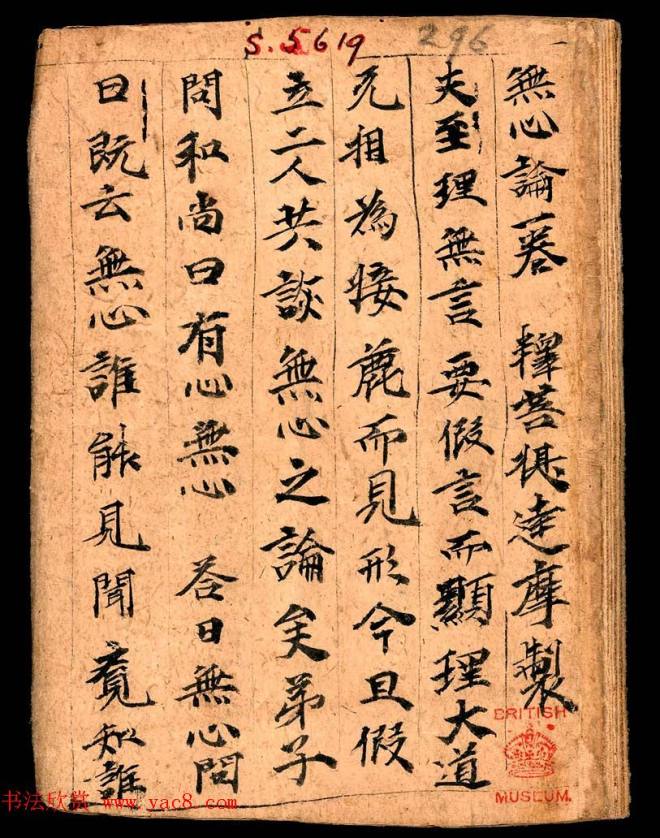 S.5619
296
無心論一卷 釋菩提達摩製
夫至理無言要假言而顯理大道
无相為接麁而見形今且假
立二人共談無心之論矣弟子
問和尚曰有心無心 荅曰無心問
曰既云無心誰能見聞覺知誰
BRITISH
MUSEUM.
书法欣赏 www.yac8.com